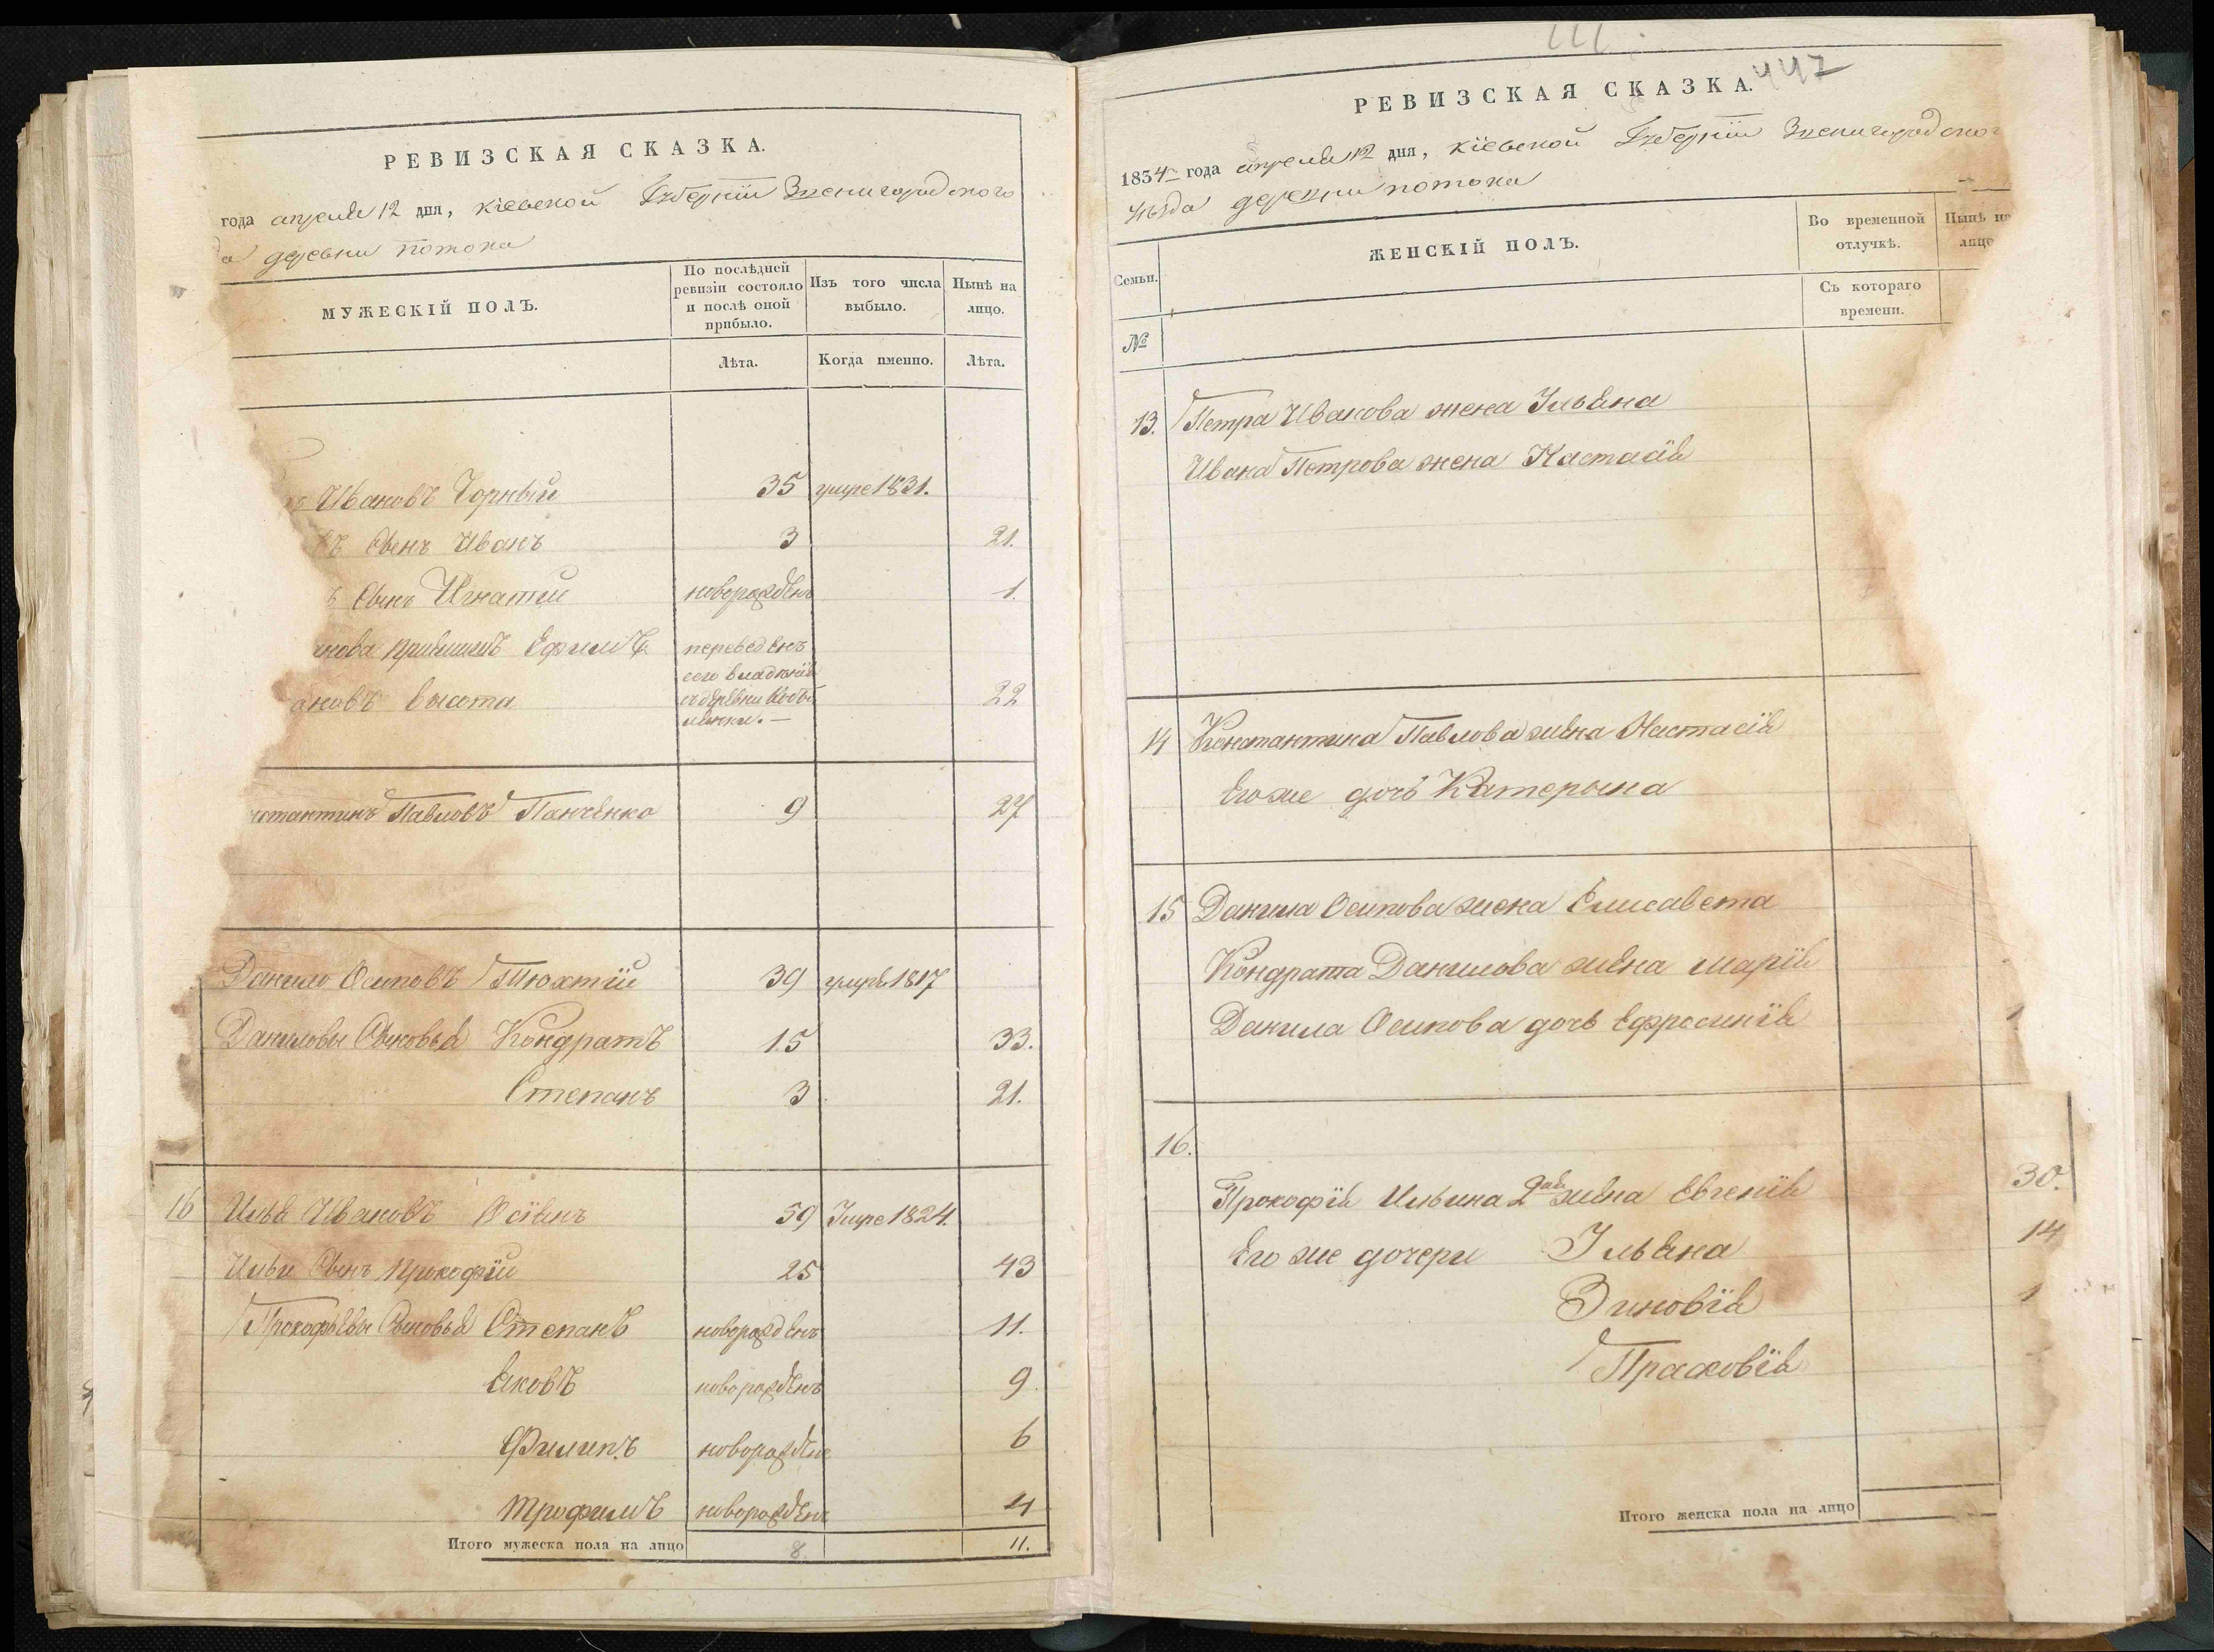 РЕВИЗСКАЯ СКАЗКА.
года апреля 12 дня, Кіевской Губерніи Звенигородского
да деревни Потока
МУЖЕСКІЙ ПОЛЪ.
По послѣдней ревизіи состояло и послѣ оной прибыло.
Изъ того числа выбыло.
Нынѣ на лицо.
Лѣта.
Когда именно.
Лѣта.
Ивановъ Чорный 35 умре 1831.
Сынъ Иванъ 3 21.
Сынъ Игнатій новорожденъ 1.
Ефимъ переведенъ
сего владѣнія
съ деревни
ановъ Висота 22
нстантинъ Павловъ Панченко 9 27
Данило Осиповъ Тюхтій 39 умре 1817
Даниловы Сыновья Кондратъ 15 33.
Степанъ 3 21.
16 Илья Ивановъ 59 Умре 1824.
Ильи Сынъ Прокофій 25 43
Прокофьевы Сыновья Степанъ новорожденъ 11.
Яковъ новорожденъ 9.
Филипъ новорожден 6
Трофимъ новорожден 4
Итого мужеска пола на лицо 8. 11.
447
РЕВИЗСКАЯ СКАЗКА.
1834 года апреля 12 дня, Кіевской Губерніи Звенигородског
уѣзда деревни Потока
Семьи.
ЖЕНСКІЙ ПОЛЪ.
Во временной отлучкѣ.
Нынѣ на лицо
№
Съ котораго времени.
13. Петра Иванова жена Ульяна
Ивана Петрова жена Настасія
14 Константина Павлова жена Настасія
Его же дочь Катерына
15 Данила Осипова жена Елисавета
Кондрата Данилова жена Марія
Данила Осипова дочь Ефросинія 1
16.
Прокофія Ильина 2ая жена Евгенія 30.
Его же дочери Ульяна 14
Зиновія 1
Прасковія
Итого женска пола на лицо